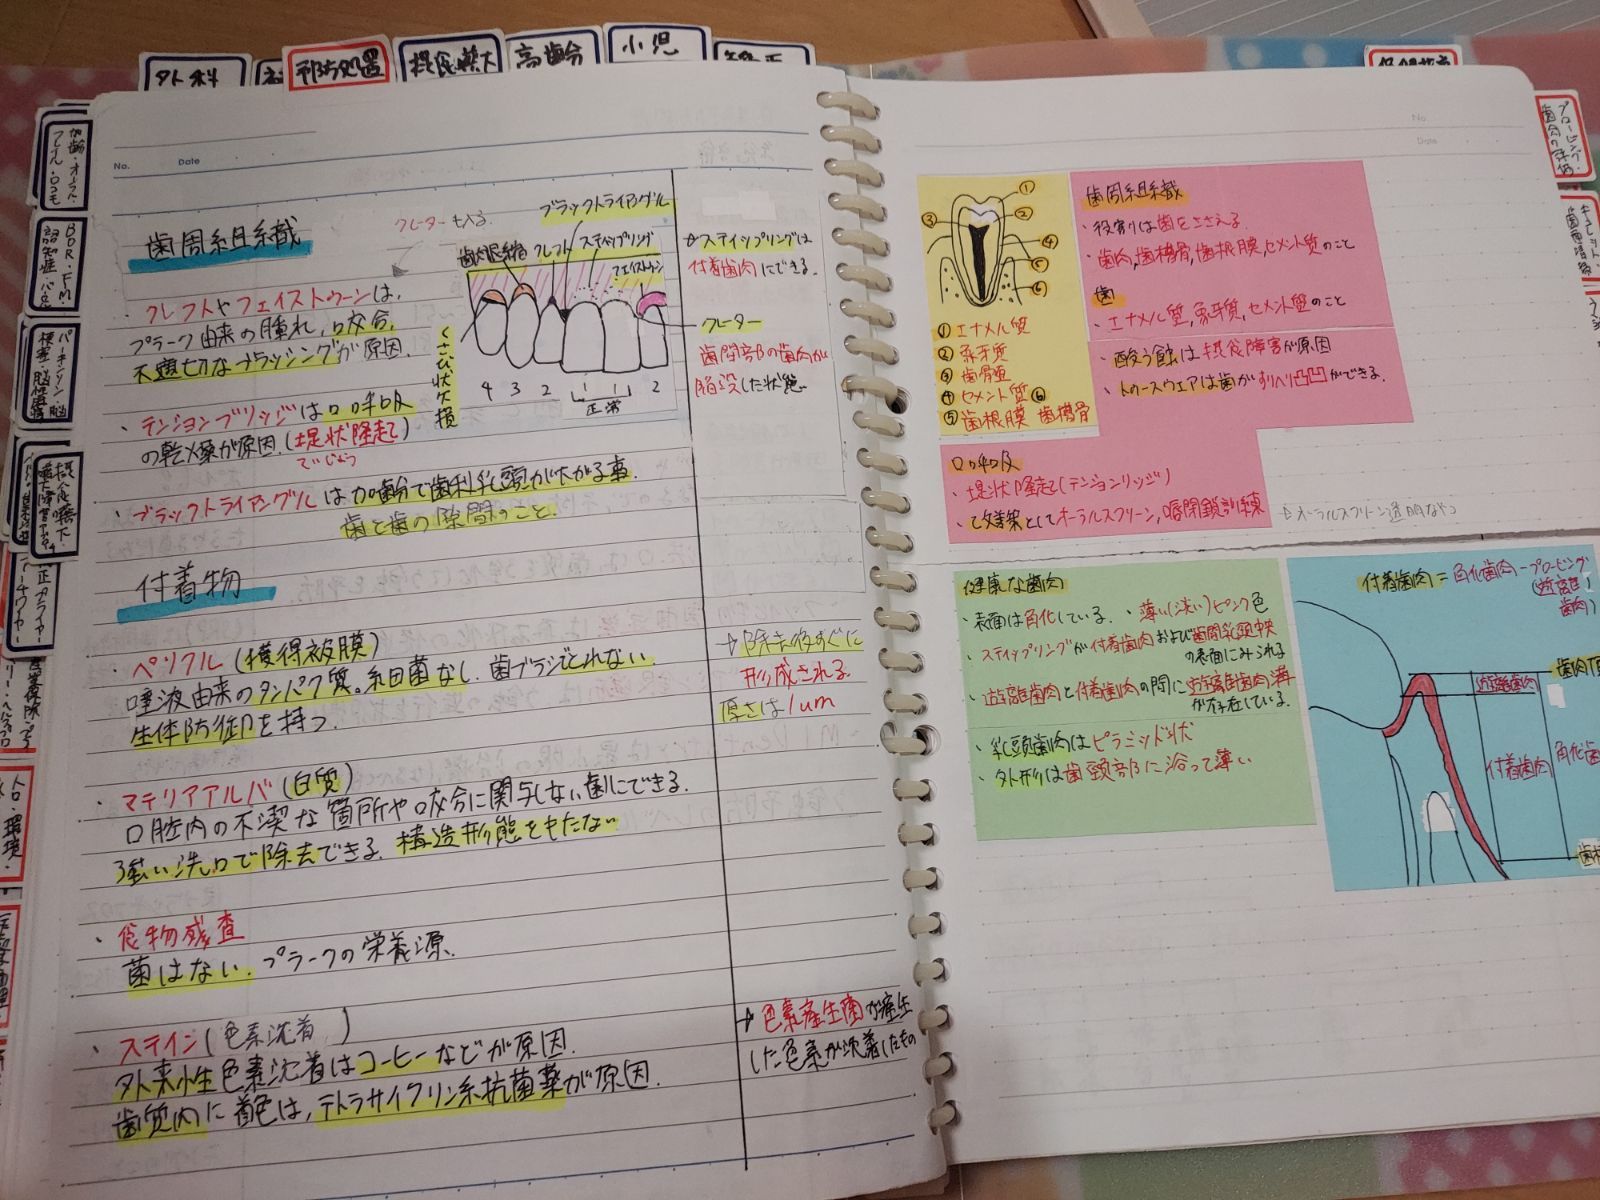 外科
予防処置
摂食嚥下
高齢
小児
矯正
No.
Date
歯周組織
クレーターも入る。
ブラックトライアングル
歯肉退縮
クレフト
スティップリング
フェイストゥーン
くさび状欠損
4 3 2 1 1 2
正常
・クレフトやフェイストゥーンは、
プラーク由来の腫れ、咬合、
不適切なブラッシングが原因。
・テンションブリッジは口呼吸
の乾燥が原因。(堤状隆起)
ていじょう
・ブラックトライアングルは加齢で歯間乳頭が下がる事。
歯と歯の隙間のこと。
→スティップリングは
付着歯肉にできる。
クレーター
歯間部の歯肉が
陥没した状態
付着物
・ペリクル(獲得被膜)
唾液由来のタンパク質。細菌なし。歯ブラシでとれない。
生体防御を持つ
→除去後すぐに
形成される
厚さは1um
・マテリアアルバ(白質)
口腔内の不潔な箇所や咬合に関与しない歯にできる。
強い洗口で除去できる。構造形態をもたない
・食物残渣
菌はない。プラークの栄養源。
・ステイン(色素沈着)
外来性色素沈着はコーヒーなどが原因。
歯質内に着色は、テトラサイクリン系抗菌薬が原因。
→色素産生菌が産生
した色素が沈着したもの
No
Date
①
②
③
④
⑤
⑥
①エナメル質
②象牙質
③歯骨亜
④セメント質⑥
⑤歯根膜 歯槽骨
歯周組織
・役割りは歯をささえる。
・歯肉,歯槽骨,歯根膜,セメント質のこと
歯
・エナメル質,象牙質,セメント質のこと
・酸う蝕は摂食障害が原因
・トゥースウェアは歯がすりへり凸凹ができる。
口呼吸
・堤状隆起(テンションリッジ)
・改善策としてオーラルスクリーン,口唇閉鎖訓練
⇨オーラルスクリーン透明なやつ
健康な歯肉
・表面は角化している。・薄い(淡い)ピンク色
・スティップリングが付着歯肉および歯間乳頭中央
の表面にみられる
・遊離歯肉と付着歯肉の間に遊離歯肉溝
が存在している。
・乳頭歯肉はピラミッド状
・外形は歯頸部に沿って薄い
付着歯肉=角化歯肉-プロービング
(遊離歯肉)
歯肉頂
遊離歯肉
付着歯肉
角化歯